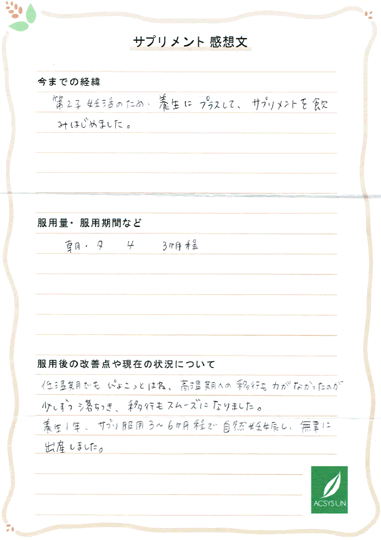 サプリメント 感想文
今までの経緯
第2子 妊活のため、養生に プラスして、サプリメントを飲
みはじめました。
服用量・服用期間など
朝・夕 4 3ヶ月程
服用後の改善点や現在の状況について
低温期でも ぴょこっとはね、高温期への 移行も 力がなかったのが
少しずつ 落ちつき、移行も スムーズに なりました。
養生1年、サプリ服用 3〜6ヶ月程で 自然妊娠し、無事に
出産しました。
ACSYSUN